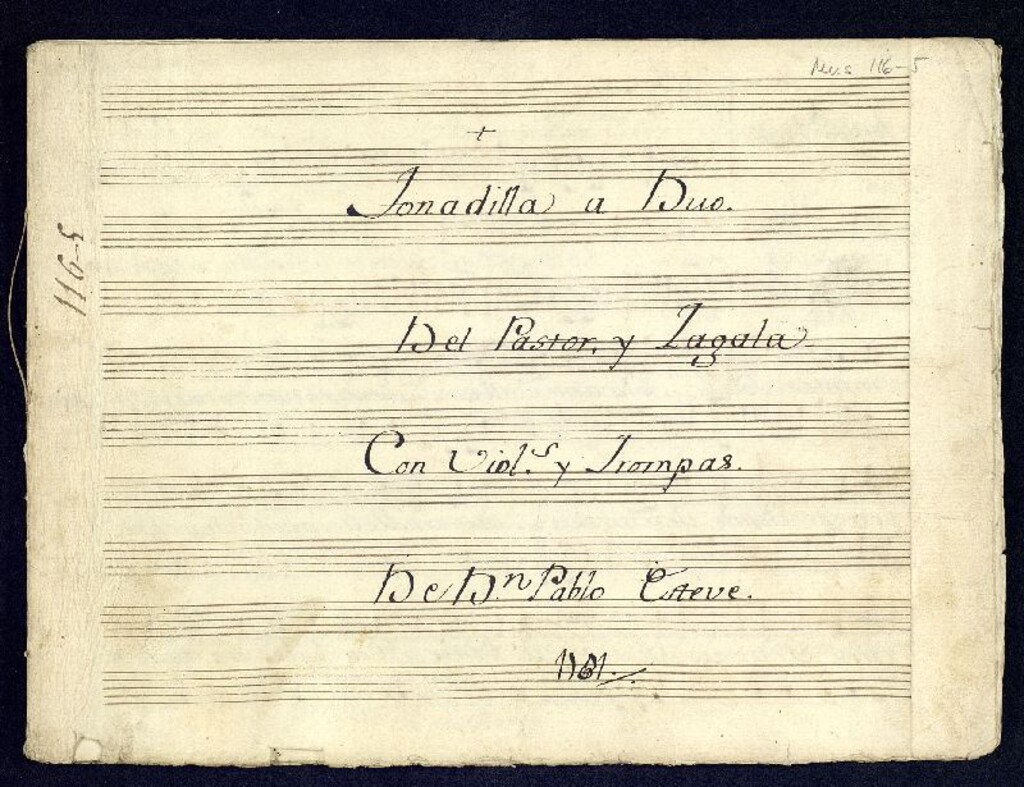 Mus 116-5
+
Tonadilla a Duo.
116-5
Del Pastor, y Zagala
Con Viol.s y Trompas.
De D.n Pablo Esteve.
1781.